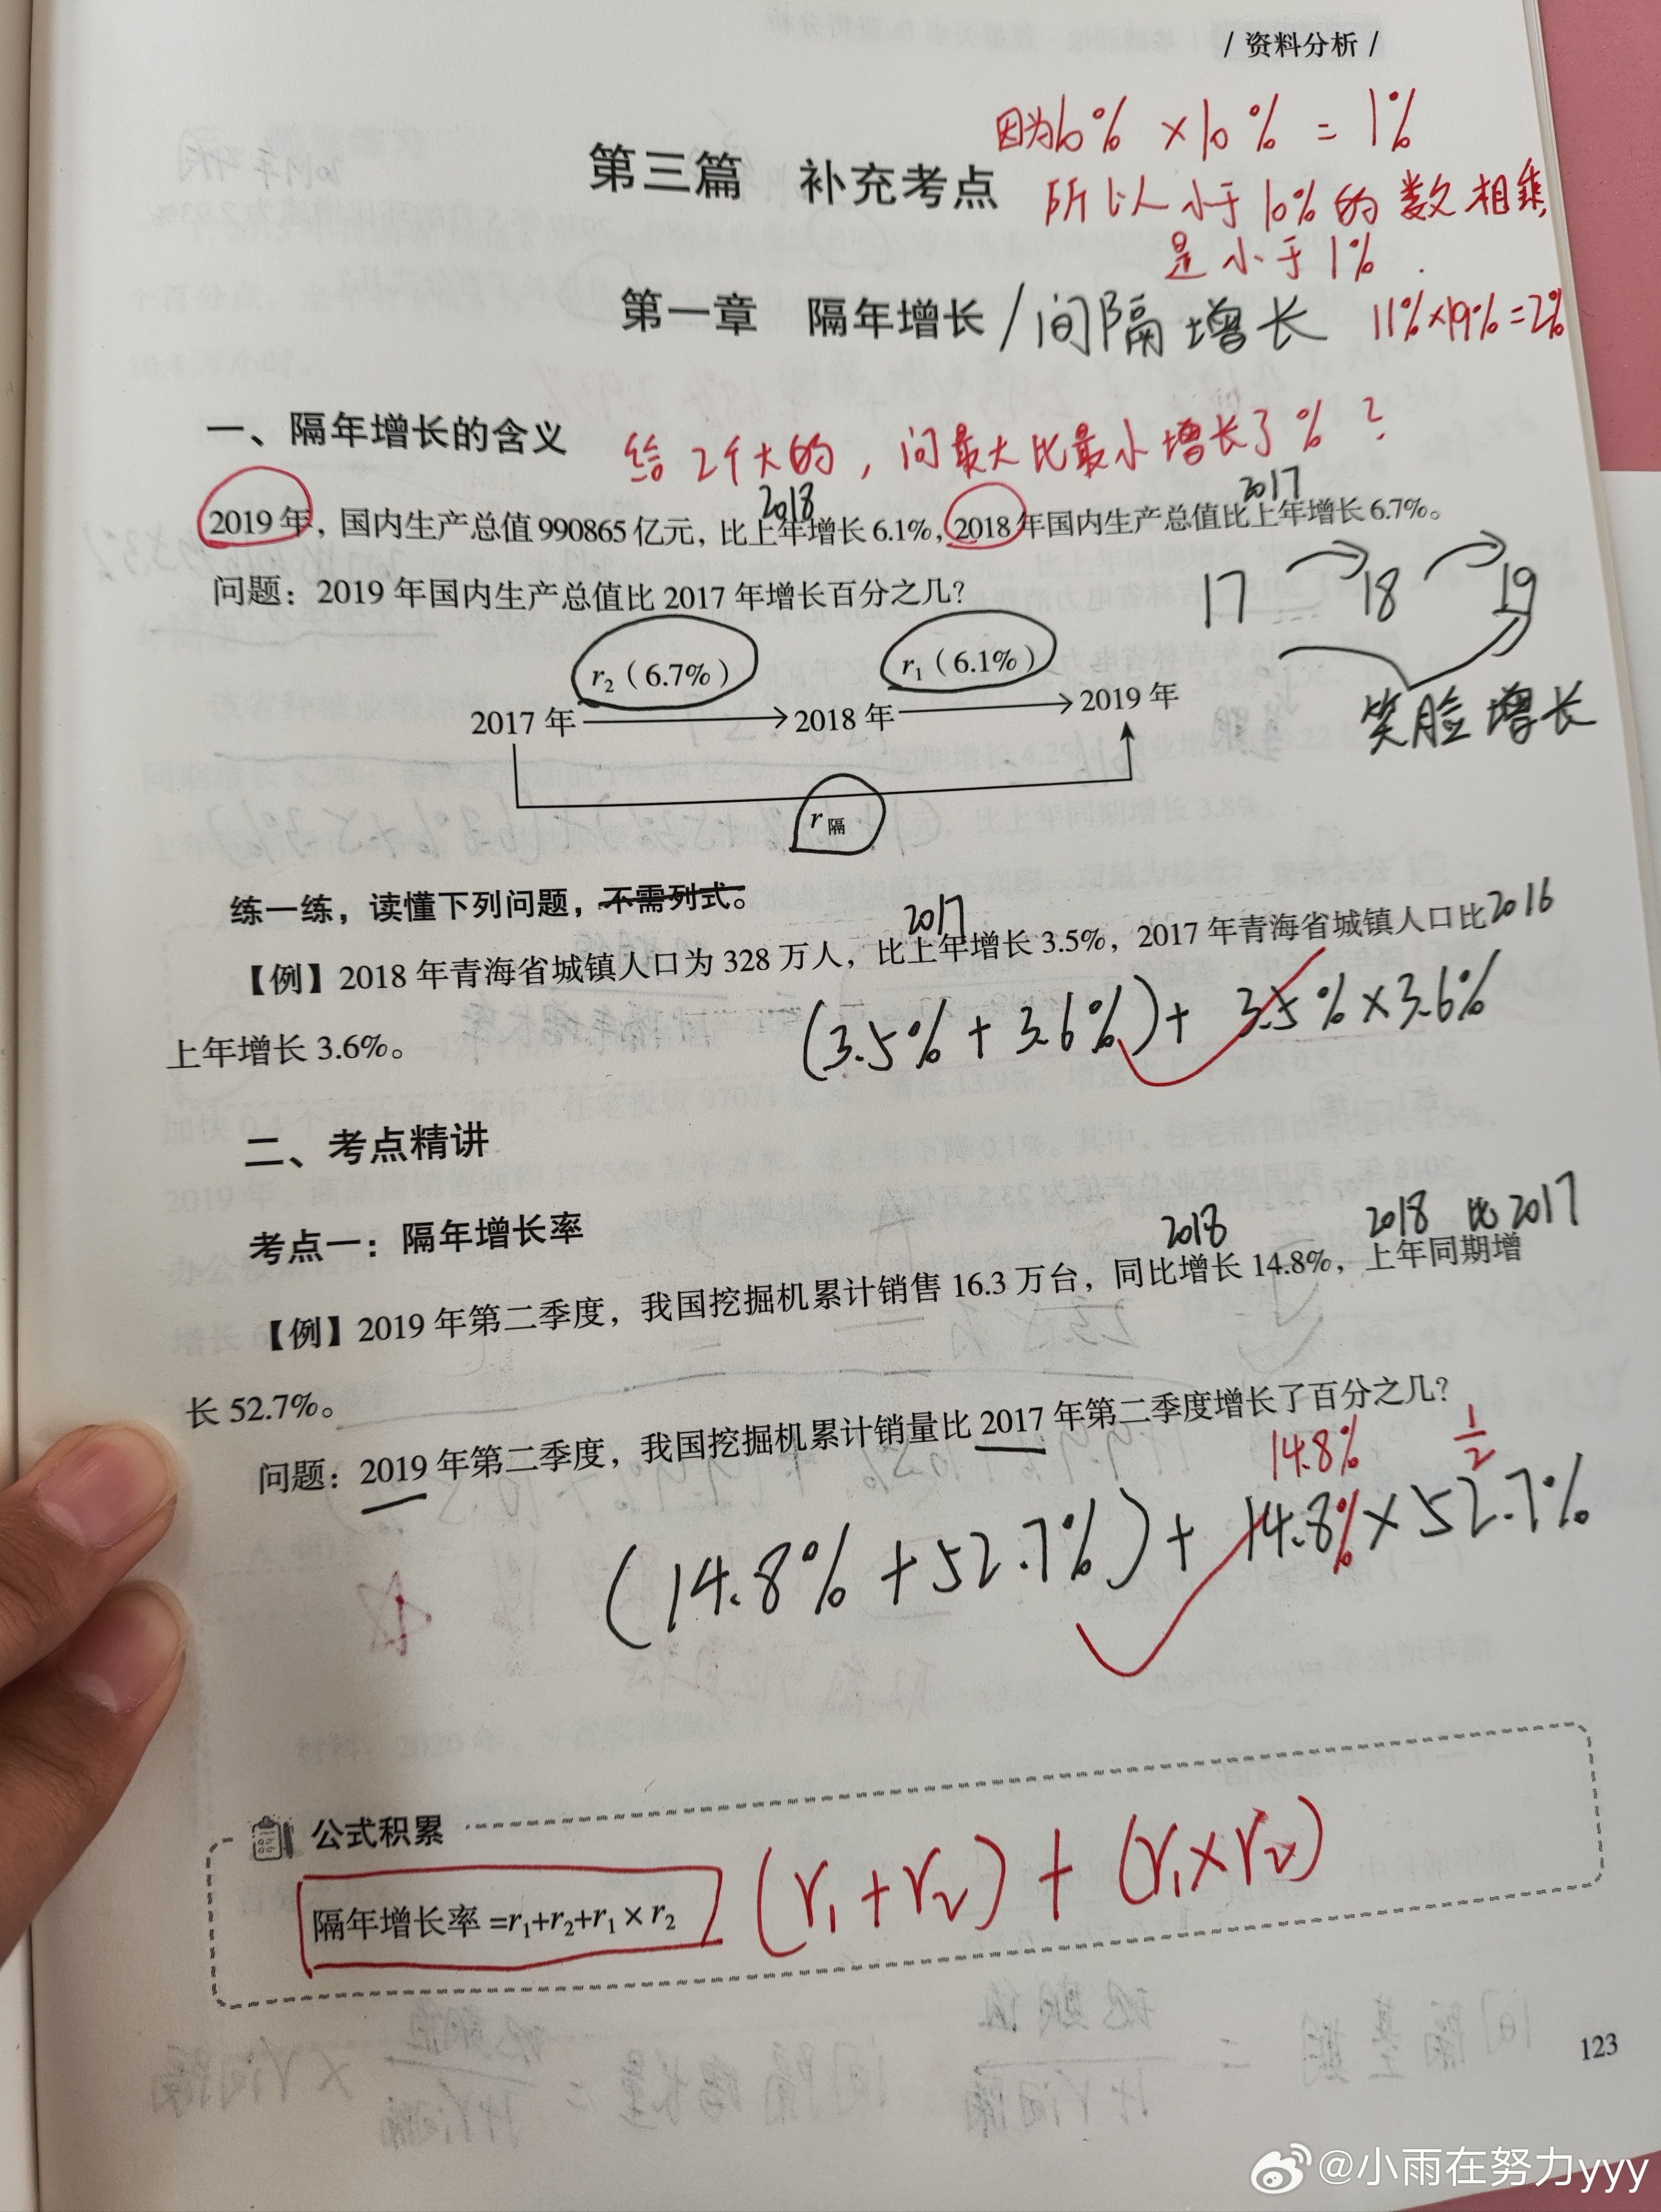 / 资料分析 /
因为10% × 10% = 1%
第三篇 补充考点
所以小于10%的数相乘
是小于1%.
第一章 隔年增长/间隔增长
11%×19%=2%
一、隔年增长的含义
给2个大的，问最大比最小增长了%？
2018 2017
2019年，国内生产总值990865亿元，比上年增长6.1%，2018年国内生产总值比上年增长6.7%。
问题：2019年国内生产总值比2017年增长百分之几？
17 18 19
r₂（6.7%） r₁（6.1%）
2017年 2018年 2019年
笑脸增长
r隔
练一练，读懂下列问题，不需列式。
2017
【例】2018年青海省城镇人口为328万人，比上年增长3.5%，2017年青海省城镇人口比2016
上年增长3.6%。
(3.5%+3.6%)+3.5%×3.6%
二、考点精讲
考点一：隔年增长率
2018 2018 比2017
【例】2019年第二季度，我国挖掘机累计销售16.3万台，同比增长14.8%，上年同期增
长52.7%。
问题：2019年第二季度，我国挖掘机累计销量比2017年第二季度增长了百分之几？
14.8% 1/2
(14.8%+52.7%)+14.8%×52.7%
公式积累
隔年增长率=r₁+r₂+r₁×r₂
(r₁+r₂)+(r₁×r₂)
123
@小雨在努力yyy